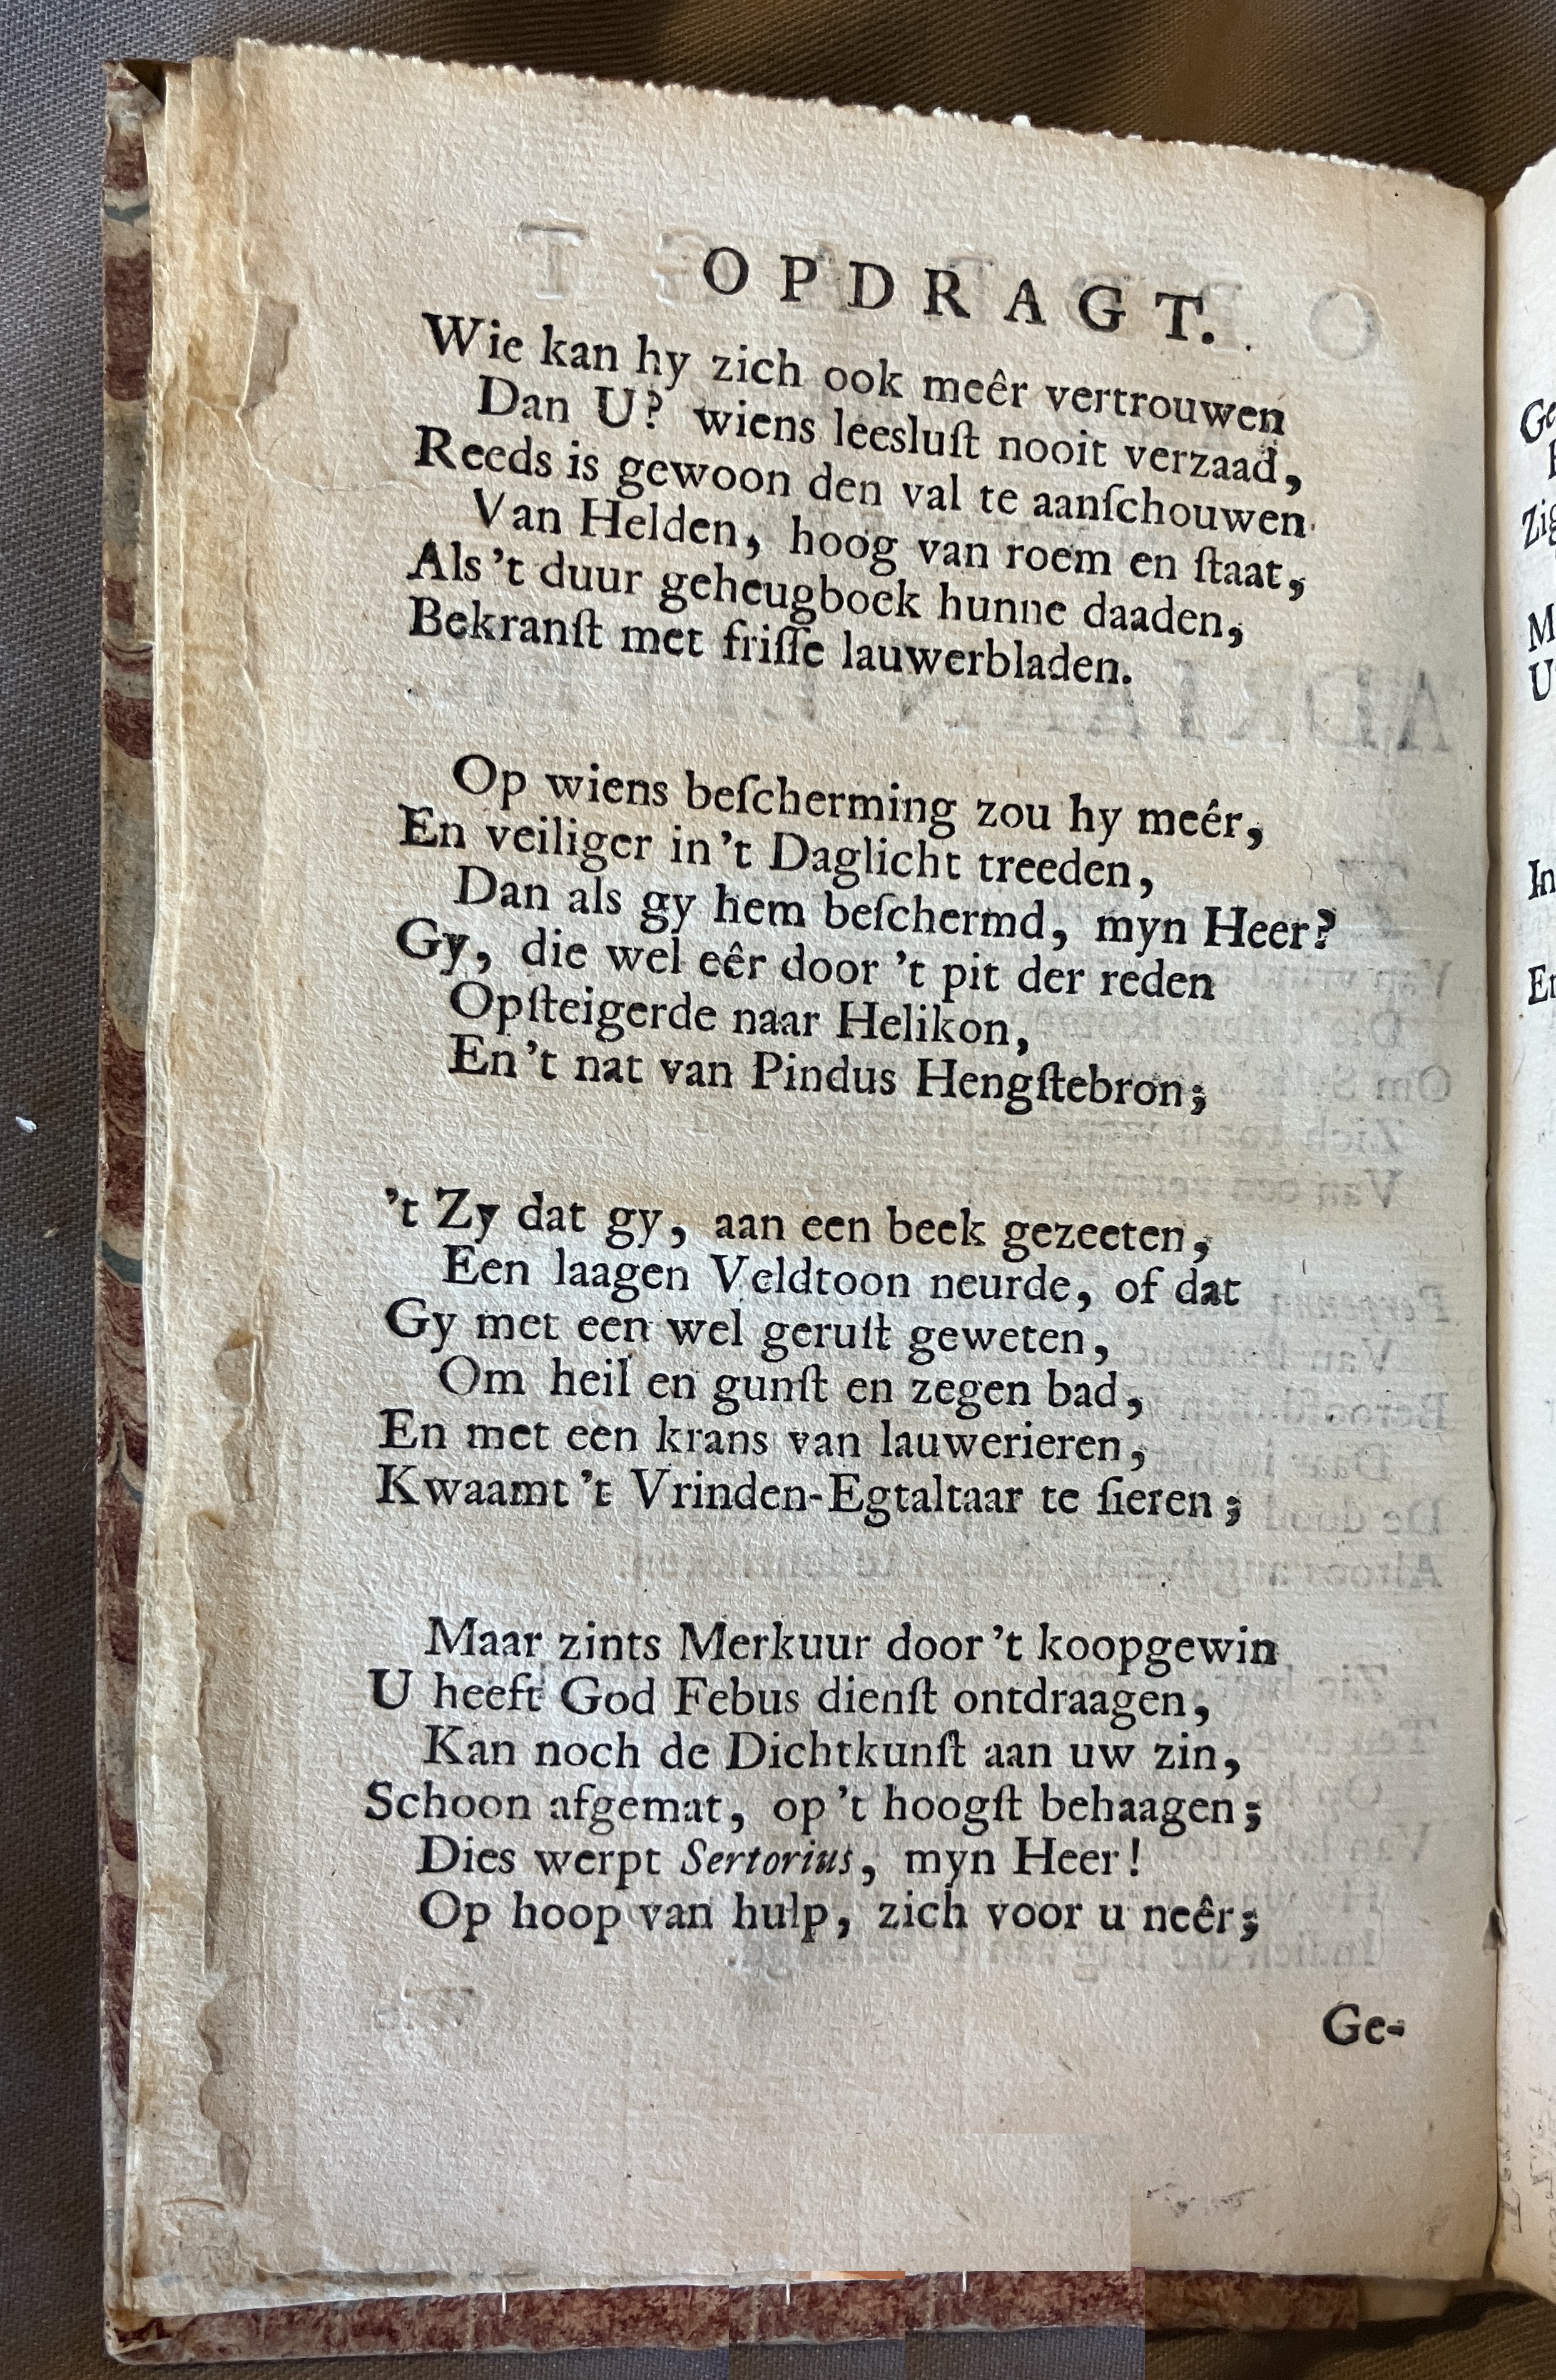 OPDRAGT.
Wie kan hy zich ook meêr vertrouwen
Dan U? wiens leesluſt nooit verzaad,
Reeds is gewoon den val te aanſchouwen
Van Helden, hoog van roem en ſtaat,
Als 't duur geheugboek hunne daaden,
Bekranſt met friſſe lauwerbladen.
Op wiens beſcherming zou hy meêr,
En veiliger in 't Daglicht treeden,
Dan als gy hem beſchermd, myn Heer?
Gy, die wel eêr door 't pit der reden
Opſteigerde naar Helikon,
En 't nat van Pindus Hengſtebron;
't Zy dat gy, aan een beek gezeeten,
Een laagen Veldtoon neurde, of dat
Gy met een wel geruſt geweten,
Om heil en gunſt en zegen bad,
En met een krans van lauwerieren,
Kwaamt 't Vrinden-Egtaltaar te ſieren;
Maar zints Merkuur door 't koopgewin
U heeft God Febus dienſt ontdraagen,
Kan noch de Dichtkunſt aan uw zin,
Schoon afgemat, op 't hoogſt behaagen;
Dies werpt Sertorius, myn Heer!
Op hoop van hulp, zich voor u neêr;
Ge-